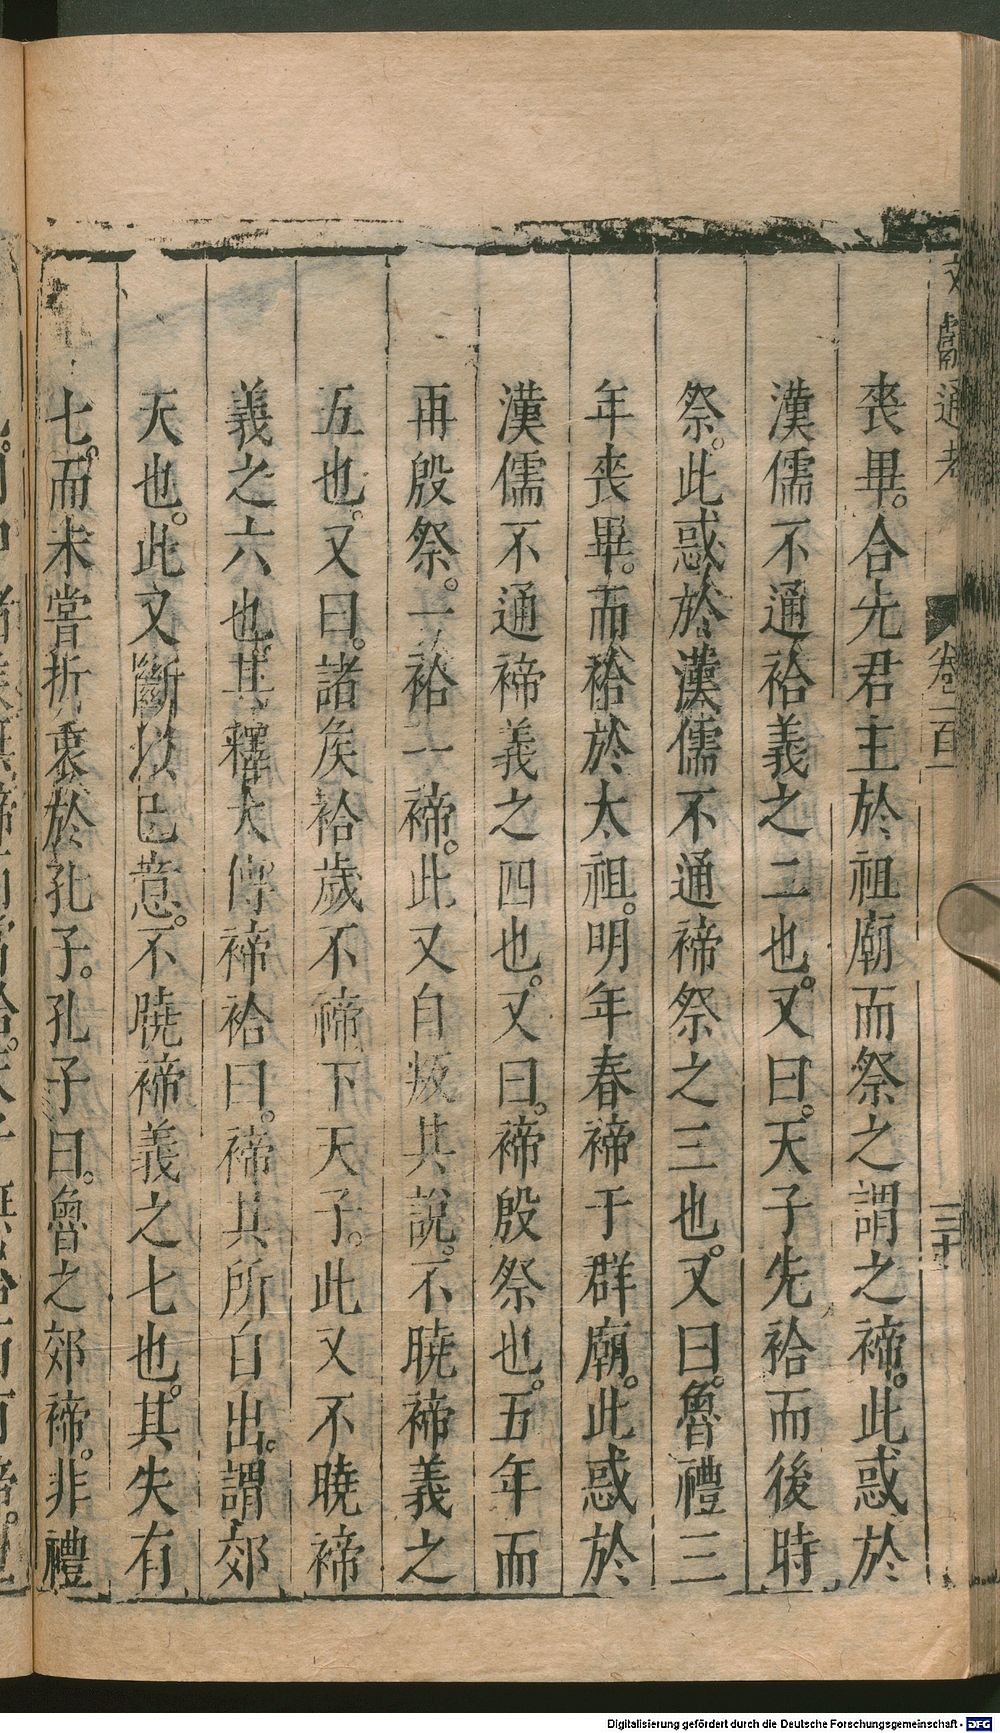 文獻通考 卷一百一 三十
喪畢。合先君主於祖廟而祭之謂之禘。此惑於
漢儒不通祫義之二也。又曰。天子先祫而後時
祭。此惑於漢儒不通禘祭之三也。又曰。魯禮三
年喪畢。而祫於太祖。明年春禘于群廟。此惑於
漢儒不通禘義之四也。又曰。禘殷祭也。五年而
再殷祭。一祫一禘。此又自叛其說。不曉禘義之
五也。又曰。諸侯祫歲不禘下天子。此又不曉禘
義之六也。其釋大傳禘祫曰。禘其所自出。謂郊
天也。此又斷以己意。不曉禘義之七也。其失有
七。而未嘗折衷於孔子。孔子曰。魯之郊禘。非禮
Digitalisierung gefördert durch die Deutsche Forschungsgemeinschaft - DFG